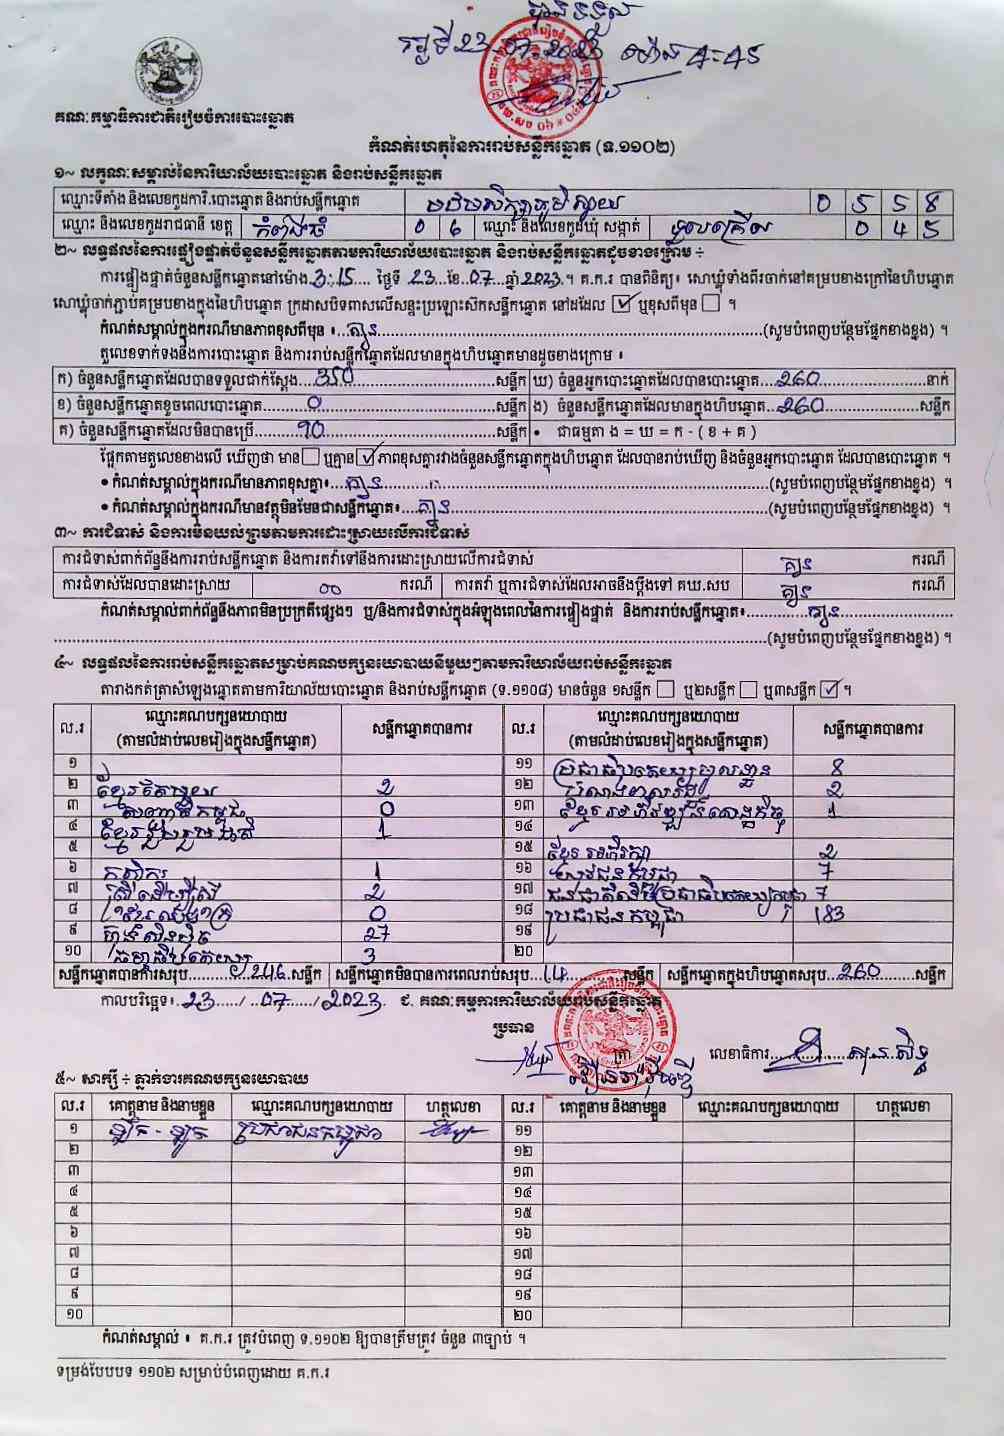 ថ្ងៃទី 23.07.2023 ម៉ោង 4:45
គណៈកម្មាធិការជាតិរៀបចំការបោះឆ្នោត
កំណត់ហេតុនៃការរាប់សន្លឹកឆ្នោត (ទ.១១០២)
១~ លក្ខណៈសម្គាល់នៃការិយាល័យបោះឆ្នោត និងរាប់សន្លឹកឆ្នោត
ឈ្មោះទីតាំង និងលេខកូដការិ.បោះឆ្នោត និងរាប់សន្លឹកឆ្នោត 0 5 5 8
ឈ្មោះ និងលេខកូដរាជធានី ខេត្ត កំពង់ធំ 0 6 ឈ្មោះ និងលេខកូដឃុំ សង្កាត់ ទួលគ្រើល 0 4 5
២~ លទ្ធផលនៃការផ្ទៀងផ្ទាត់ចំនួនសន្លឹកឆ្នោតតាមការិយាល័យបោះឆ្នោត និងរាប់សន្លឹកឆ្នោតដូចខាងក្រោម ÷
ការផ្ទៀងផ្ទាត់ចំនួនសន្លឹកឆ្នោតនៅម៉ោង 3:15 ថ្ងៃទី 23 ខែ 07 ឆ្នាំ 2023 ។ គ.ក.រ បានពិនិត្យ៖ សោឃ្លុំទាំងពីរចាក់នៅគម្របខាងក្រៅនៃហិបឆ្នោត
សោឃ្លុំចាក់ភ្ជាប់គម្របខាងក្នុងនៃហិបឆ្នោត ក្រដាសបិទពាសលើសន្ទះប្រឡោះស៊កសន្លឹកឆ្នោត នៅដដែល ☑ ឬខុសពីមុន ☐ ។
កំណត់សម្គាល់ក្នុងករណីមានភាពខុសពីមុន ៖ គ្មាន (សូមបំពេញបន្ថែមផ្នែកខាងខ្នង) ។
តួលេខទាក់ទងនឹងការបោះឆ្នោត និងការរាប់សន្លឹកឆ្នោតដែលមានក្នុងហិបឆ្នោតមានដូចខាងក្រោម ៖
ក) ចំនួនសន្លឹកឆ្នោតដែលបានទទួលជាក់ស្តែង 350 សន្លឹក ឃ) ចំនួនអ្នកបោះឆ្នោតដែលបានបោះឆ្នោត 260 នាក់
ខ) ចំនួនសន្លឹកឆ្នោតខូចពេលបោះឆ្នោត 0 សន្លឹក ង) ចំនួនសន្លឹកឆ្នោតដែលមានក្នុងហិបឆ្នោត 260 សន្លឹក
គ) ចំនួនសន្លឹកឆ្នោតដែលមិនបានប្រើ 90 សន្លឹក • ជាធម្មតា ង = ឃ = ក - ( ខ + គ )
ផ្អែកតាមតួលេខខាងលើ ឃើញថា មាន ☐ ឬគ្មាន ☑ ភាពខុសគ្នារវាងចំនួនសន្លឹកឆ្នោតក្នុងហិបឆ្នោត ដែលបានរាប់ឃើញ និងចំនួនអ្នកបោះឆ្នោត ដែលបានបោះឆ្នោត ។
• កំណត់សម្គាល់ក្នុងករណីមានភាពខុសគ្នា៖ គ្មាន (សូមបំពេញបន្ថែមផ្នែកខាងខ្នង) ។
• កំណត់សម្គាល់ក្នុងករណីមានវត្ថុមិនមែនជាសន្លឹកឆ្នោត៖ គ្មាន (សូមបំពេញបន្ថែមផ្នែកខាងខ្នង) ។
៣~ ការជំទាស់ និងការមិនយល់ព្រមតាមការដោះស្រាយលើការជំទាស់
ការជំទាស់ពាក់ព័ន្ធនឹងការរាប់សន្លឹកឆ្នោត និងការតវ៉ាទៅនឹងការដោះស្រាយលើការជំទាស់ គ្មាន ករណី
ការជំទាស់ដែលបានដោះស្រាយ 00 ករណី ការតវ៉ា ឬការជំទាស់ដែលអាចនឹងប្តឹងទៅ គឃ.សប គ្មាន ករណី
កំណត់សម្គាល់ពាក់ព័ន្ធនឹងភាពមិនប្រក្រតីផ្សេងៗ ឬ/និងការជំទាស់ក្នុងអំឡុងពេលនៃការផ្ទៀងផ្ទាត់ និងការរាប់សន្លឹកឆ្នោត៖ គ្មាន
(សូមបំពេញបន្ថែមផ្នែកខាងខ្នង) ។
៤~ លទ្ធផលនៃការរាប់សន្លឹកឆ្នោតសម្រាប់គណបក្សនយោបាយនីមួយៗតាមការិយាល័យរាប់សន្លឹកឆ្នោត
តារាងកត់ត្រាសំឡេងឆ្នោតតាមការិយាល័យបោះឆ្នោត និងរាប់សន្លឹកឆ្នោត (ទ.១១០៨) មានចំនួន ១សន្លឹក ☐ ឬ២សន្លឹក ☐ ឬ៣សន្លឹក ☑ ។
ល.រ ឈ្មោះគណបក្សនយោបាយ (តាមលំដាប់លេខរៀងក្នុងសន្លឹកឆ្នោត) សន្លឹកឆ្នោតបានការ ល.រ ឈ្មោះគណបក្សនយោបាយ (តាមលំដាប់លេខរៀងក្នុងសន្លឹកឆ្នោត) សន្លឹកឆ្នោតបានការ
១ ១១ ប្រជាធិបតេយ្យមូលដ្ឋាន 8
២ 2 ១២ 2
៣ 0 ១៣ ខ្មែរអភិវឌ្ឍន៍សេដ្ឋកិច្ច 1
៤ ខ្មែររួបរួមជាតិ 1 ១៤
៥ ១៥ ខ្មែរអភិរក្ស 2
៦ កសិករ 1 ១៦ 7
៧ ស្ត្រីដើម្បីស្ត្រី 2 ១៧ 7
៨ 0 ១៨ ប្រជាជនកម្ពុជា 183
៩ ហ៊្វុនស៊ិនប៉ិច 27 ១៩
១០ 3 ២០
សន្លឹកឆ្នោតបានការសរុប 246 សន្លឹក សន្លឹកឆ្នោតមិនបានការពេលរាប់សរុប 14 សន្លឹក សន្លឹកឆ្នោតក្នុងហិបឆ្នោតសរុប 260 សន្លឹក
កាលបរិច្ឆេទ៖ 23 / 07 / 2023 ជ. គណៈកម្មការការិយាល័យរាប់សន្លឹកឆ្នោត
ប្រធាន
ត្រា លេខាធិការ
៥~ សាក្សី ÷ ភ្នាក់ងារគណបក្សនយោបាយ
ល.រ គោត្តនាម និងនាមខ្លួន ឈ្មោះគណបក្សនយោបាយ ហត្ថលេខា ល.រ គោត្តនាម និងនាមខ្លួន ឈ្មោះគណបក្សនយោបាយ ហត្ថលេខា
១ ប្រជាជនកម្ពុជា ១១
២ ១២
៣ ១៣
៤ ១៤
៥ ១៥
៦ ១៦
៧ ១៧
៨ ១៨
៩ ១៩
១០ ២០
កំណត់សម្គាល់ ៖ គ.ក.រ ត្រូវបំពេញ ទ.១១០២ ឱ្យបានត្រឹមត្រូវ ចំនួន ៣ច្បាប់ ។
ទម្រង់បែបបទ ១១០២ សម្រាប់បំពេញដោយ គ.ក.រ